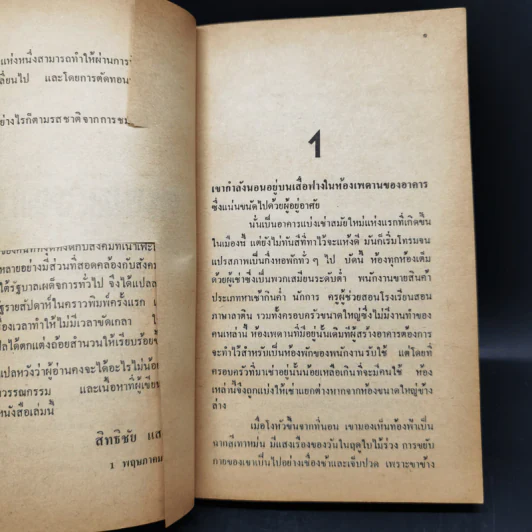 แห่งหนึ่งสามารถทำให้ผ่านการ
ลี่ยนไป และโดยการตัดทอน
ย่างไรก็ตามรสชาติจากการ
หลายอย่างมีส่วนที่สอดคล้องกับสังคม
ใต้รัฐบาลเผด็จการทั่วไป จึงได้แปลล
รัฐรายสัปดาห์ในคราวพิมพ์ครั้งแรก
องเวลาทำให้ไม่มีเวลาขัดเกลา
ปลได้ตกแต่งถ้อยสำนวนให้เรียบร้อยขึ้
แปลหวังว่าผู้อ่านคงจะได้อะไรไม่น้อย
วรรณกรรม และเนื้อหาที่ผู้เขีย
หนังสือเล่มนี้
สิทธิชัย แส
1 พฤษภาคม
1
เขากำลังนอนอยู่บนเสื่อฟางในห้องเพดานของอาคาร
ซึ่งแน่นขนัดไปด้วยผู้อยู่อาศัย
นั่นเป็นอาคารแบ่งเช่าสมัยใหม่แห่งแรกที่เกิดขึ้น
ในเมืองนี้ แต่ยังไม่ทันสีที่ทาไว้จะแห้งดี มันก็เริ่มโทรมจน
แปรสภาพเป็นกึ่งหอพักทั่ว ๆ ไป บัดนี้ ห้องทุกห้องเต็ม
ด้วยผู้เช่าซึ่งเป็นพวกเสมียนระดับต่ำ พนักงานขายสินค้า
ประเภทหาเช้ากินค่ำ นักการ ครูผู้ช่วยสอนโรงเรียนสอน
ภาษาลาติน รวมทั้งครอบครัวขนาดใหญ่ซึ่งไม่มีงานทำของ
คนเหล่านี้ ห้องเพดานที่มีอยู่นั้นเดิมทีผู้สร้างอาคารต้องการ
จะทำไว้สำหรับเป็นห้องพักของพนักงานรับใช้ แต่โดยที่
ครอบครัวที่มาเช่าอยู่นั้นน้อยเหลือเกินที่จะมีคนใช้ ห้อง
เหล่านี้จึงถูกแบ่งให้เช่าแยกต่างหากจากห้องขนาดใหญ่ข้าง
ล่าง
เมื่อโงหัวขึ้นจากที่นอน เขามองเห็นท้องฟ้าเป็น
ฉากสีเทาหม่น มีแสงเรืองของวันในฤดูใบไม้ร่วง การขยับ
กายของเขาเป็นไปอย่างเชื่องช้าและเจ็บปวด เพราะขาข้าง